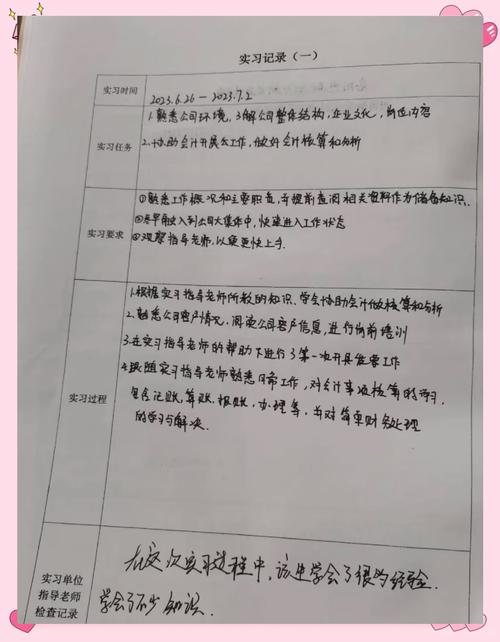 实习记录（一）
实习时间
2023.6.26 — 2023.7.2
实习任务
1.熟悉公司环境，了解公司整体结构，企业文化，岗位内容
2.协助会计开展工作，做好会计核算和分析
实习要求
①熟悉工作概况和主要职责，并提前查阅相关资料作为储备知识.
②尽早投入到公司大集体中，快速进入工作状态
③观察指导老师，以便更快上手.
实习过程
1.根据实习指导老师所教的知识、学会协助会计做核算和分析
2.熟悉公司客户情况，阅读公司客户信息，进行岗前培训
3.在实习指导老师的帮助下进行了第一次开具发票工作
4.跟随实习指导老师熟悉日常工作，对会计事项核算的学习，
包含记账，算账，报账，办理等，并对简单财务处理
的学习与解决.
实习单位
指导老师
检查记录
在这次实习过程中，该生学会了很多经验.
学会了不少知识.